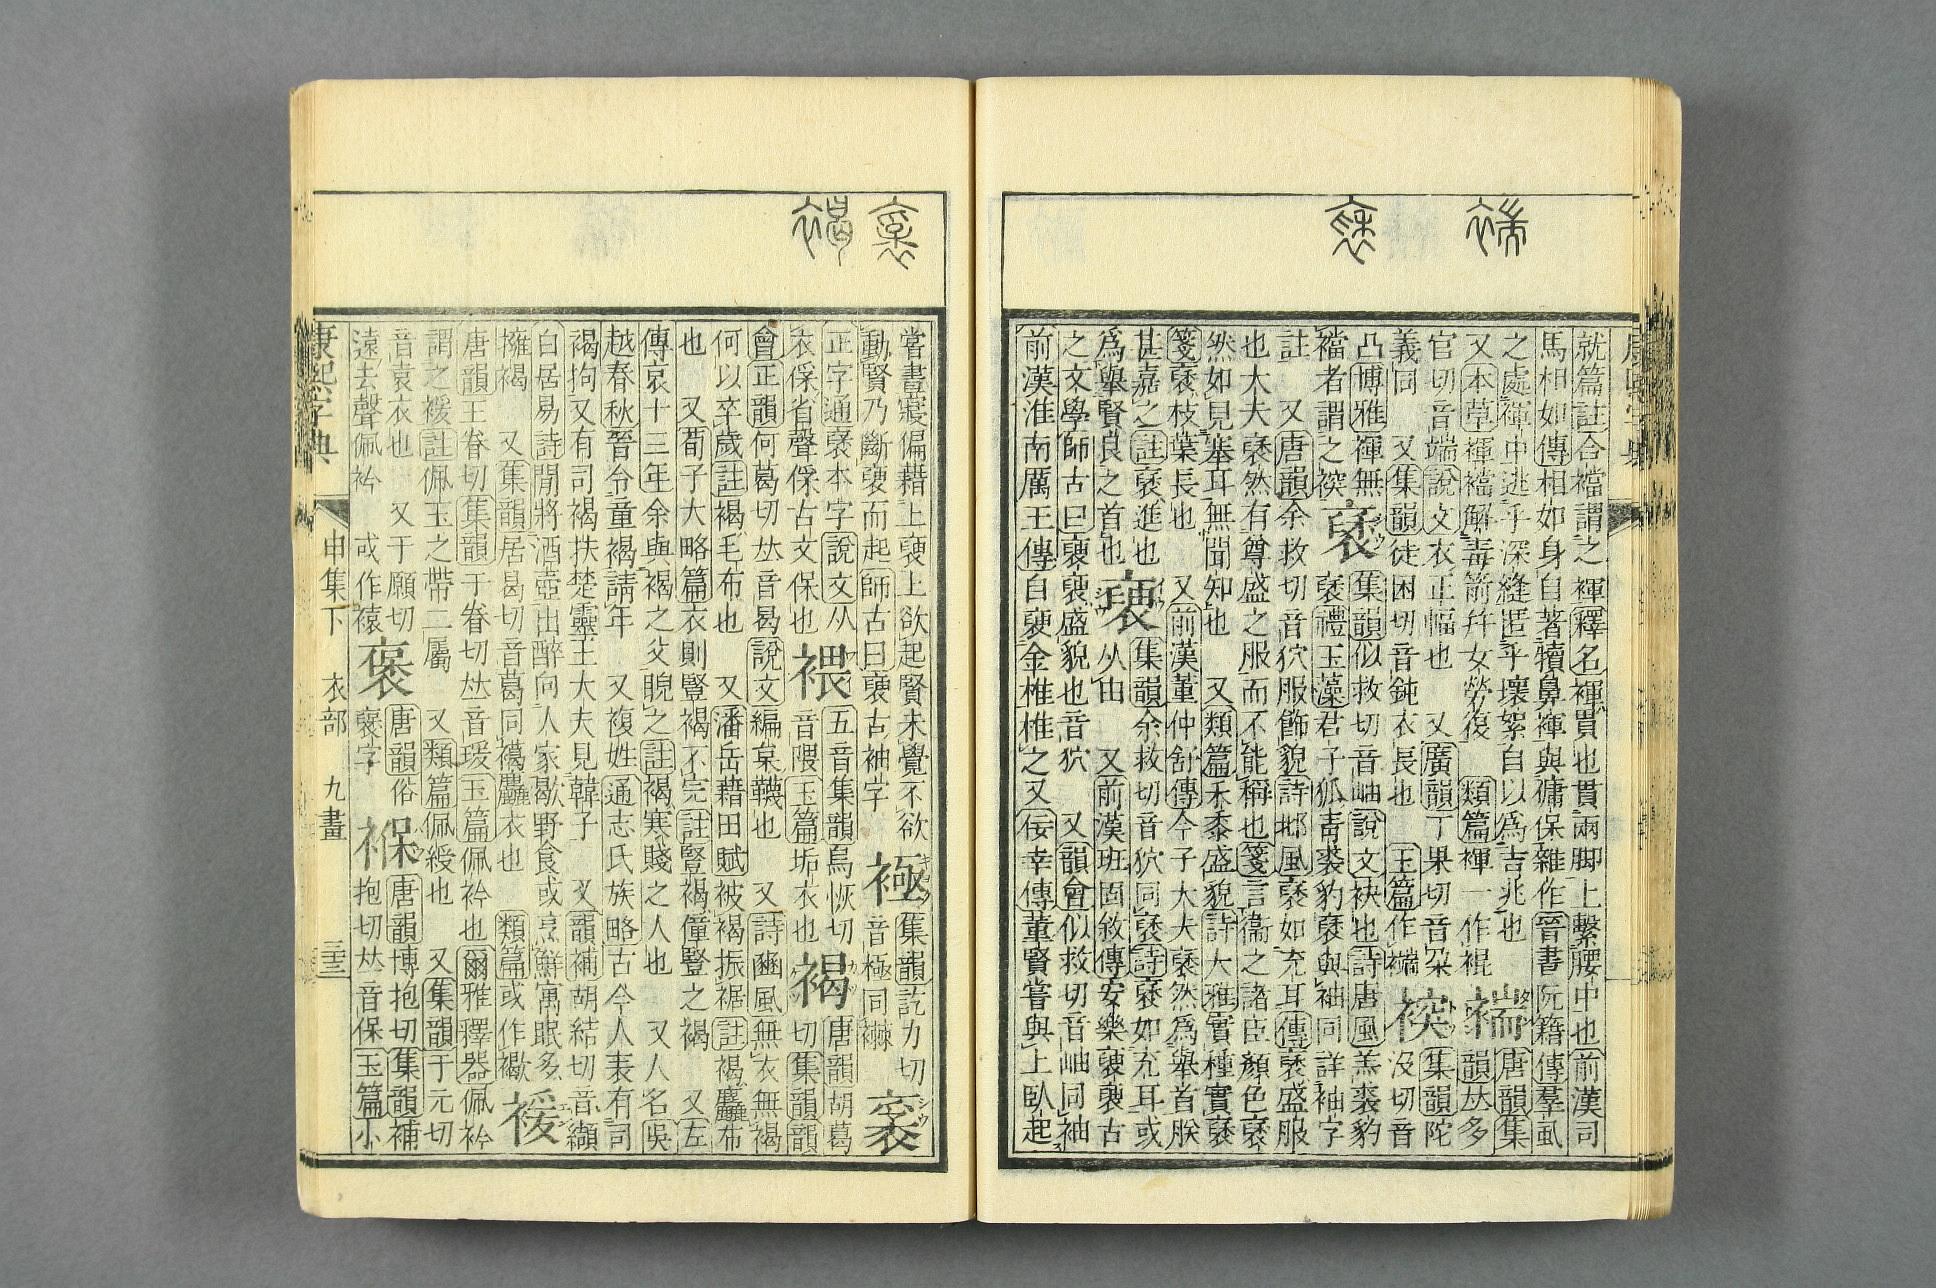 就篇註合襠謂之褌釋名褌貫也貫兩脚上繫腰中也前漢司
馬相如傳相如身自著犢鼻褌與庸保雜作晉書阮籍傳羣虱
之處褌中逃乎深縫匿乎壞絮自以爲吉兆也 褍 唐韻集
又本草褌襠解毒箭幷女勞復 類篇褌一作裩 韻𠀤多
官切音端說文衣正幅也 又廣韻丁果切音朶 䙐 集韻陀
義同 又集韻徒困切音鈍衣長也 玉篇作 沒切音
凸博雅褌無 褎 集韻似救切音岫說文袂也詩唐風羔裘豹
襠者謂之䙐 褎禮玉藻君子狐靑裘豹褎與袖同詳袖字
註 又唐韻余救切音狖服飾貌詩邶風褎如充耳傳褎盛服
也大夫褎然有尊盛之服而不能稱也箋言衞之諸臣顏色褎
然如見塞耳無聞知也 又類篇禾黍盛貌詩大雅實種實褎
箋褎枝葉長也 又前漢董仲舒傳今子大夫褎然爲舉首朕
甚嘉之註褎進也 褏 集韻余救切音狖同褎詩褎如充耳或
爲舉賢良之首也 从由 又前漢班固敘傳安樂褏褏古
之文學師古曰褏褏盛貌也音狖 又韻會似救切音岫同袖
前漢淮南厲王傳自褏金椎椎之又佞幸傳董賢嘗與上臥起
嘗晝寢偏藉上褏上欲起賢未覺不欲 極 集韻訖力切
動賢乃斷褏而起師古曰褏古袖字 音極同襋
正字通褎本字說文从 椳 五音集韻烏恢切 褐 唐韻胡葛
衣省聲古文保也 音隈玉篇垢衣也 切集韻韻
會正韻何葛切𠀤音曷說文編枲韈也 又詩豳風無衣無褐
何以卒歲註褐毛布也 又潘岳藉田賦被褐振裾註褐麤布
也 又荀子大略篇衣則豎褐不完註豎褐僮豎之褐 又左
傳哀十三年余與褐之父睨之註褐寒賤之人也 又人名吳
越春秋晉令童褐請年 又複姓通志氏族略古今人表有司
褐拘又有司褐扶楚靈王大夫見韓子 又韻補胡結切音纈
白居易詩閒將酒壺出醉向人家歇野食或烹鮮寓眠多
擁褐 又集韻居曷切音葛同麤衣也 類篇或作 褑
唐韻王眷切集韻于眷切𠀤音瑗玉篇佩衿也爾雅釋器佩衿
謂之褑註佩玉之帶二屬 又類篇佩綬也 又集韻于元切
音袁衣也 又于願切 褒 唐韻俗 褓 唐韻博抱切集韻補
遠去聲佩衿 或作 襃字 抱切𠀤音保玉篇小
康熙字典 申集下 衣部 九畫 三十三